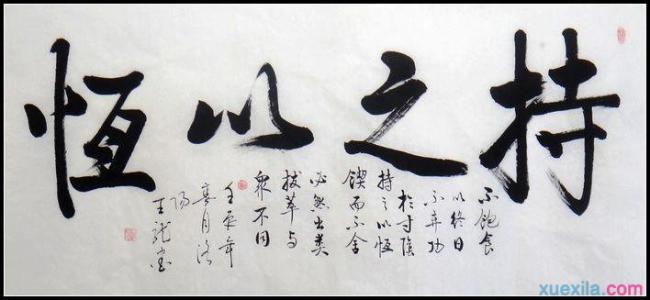 持之以恆
不飽食
以終日
不弃功
於寸陰
持之以恆
鍥而不舍
必然出类
拔萃与
眾不同
壬辰年
洛
陽
xuexila.com